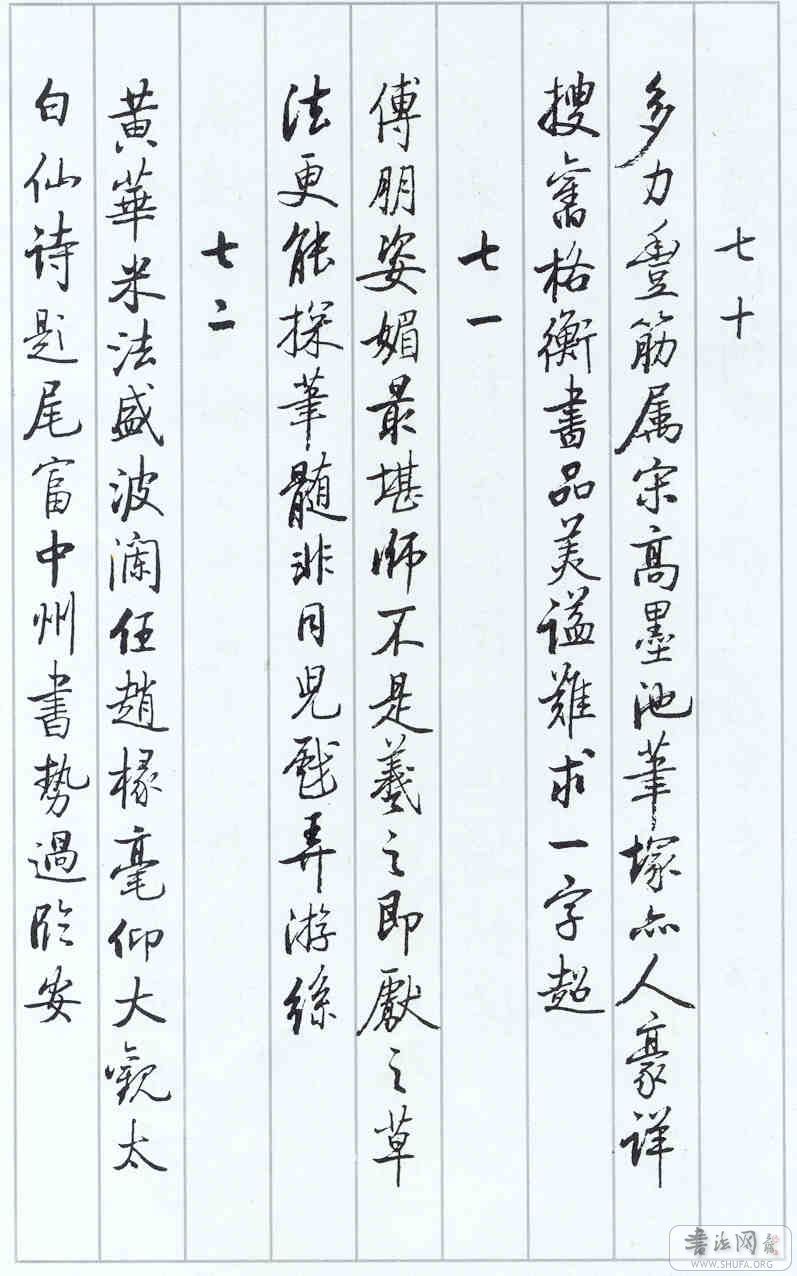 七十
多力豐筋属宋高墨池筆塚亦人豪详
搜舊格衡書品美谥難求一字超
七一
傅朋姿媚最堪師不是羲之即獻之草
法更能探筆髓非同兒戲弄游絲
七二
黄華米法盛波瀾任趙椽毫仰大觀太
白仙诗題尾富中州書勢過临安
書法网
WWW.SHUFA.ORG